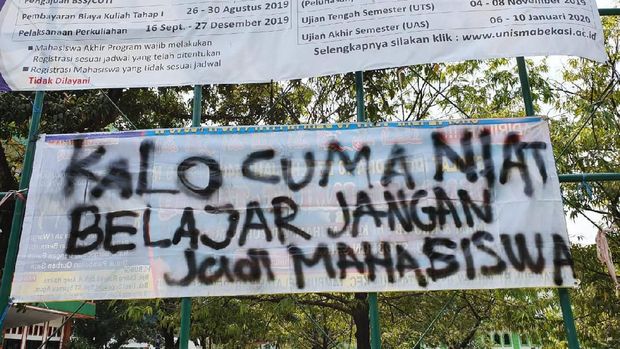 Pengajuan BSS/CUTI 26 - 30 Agustus 2019
Pembayaran Biaya Kuliah Tahap I
Pelaksanaan Perkuliahan 16 Sept. - 27 Desember 2019
Mahasiswa Akhir Program wajib melakukan
Registrasi sesuai jadwal yang telah ditentukan
Registrasi Mahasiswa yang tidak sesuai jadwal
Tidak Dilayani
04 - 08 November 2019
Ujian Tengah Semester (UTS)
06 - 10 Januari 2020
Ujian Akhir Semester (UAS)
Selengkapnya silakan klik : www.unismabekasi.ac.id
KALO CUMA NIAT
BELAJAR JANGAN
Jadi MAHASISWA